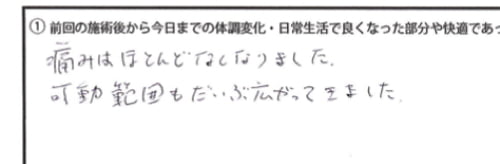 ① 前回の施術後から今日までの体調変化・日常生活で良くなった部分や快適であっ
痛みはほとんどなくなりました。
可動範囲もだいぶ広がってきました。